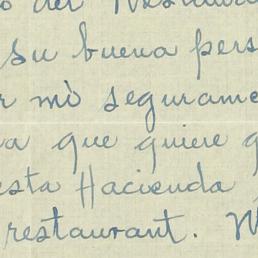 o del Restaura
su buena pers
r mi segurame
a que quiere q
esta Hacienda
restaurant.